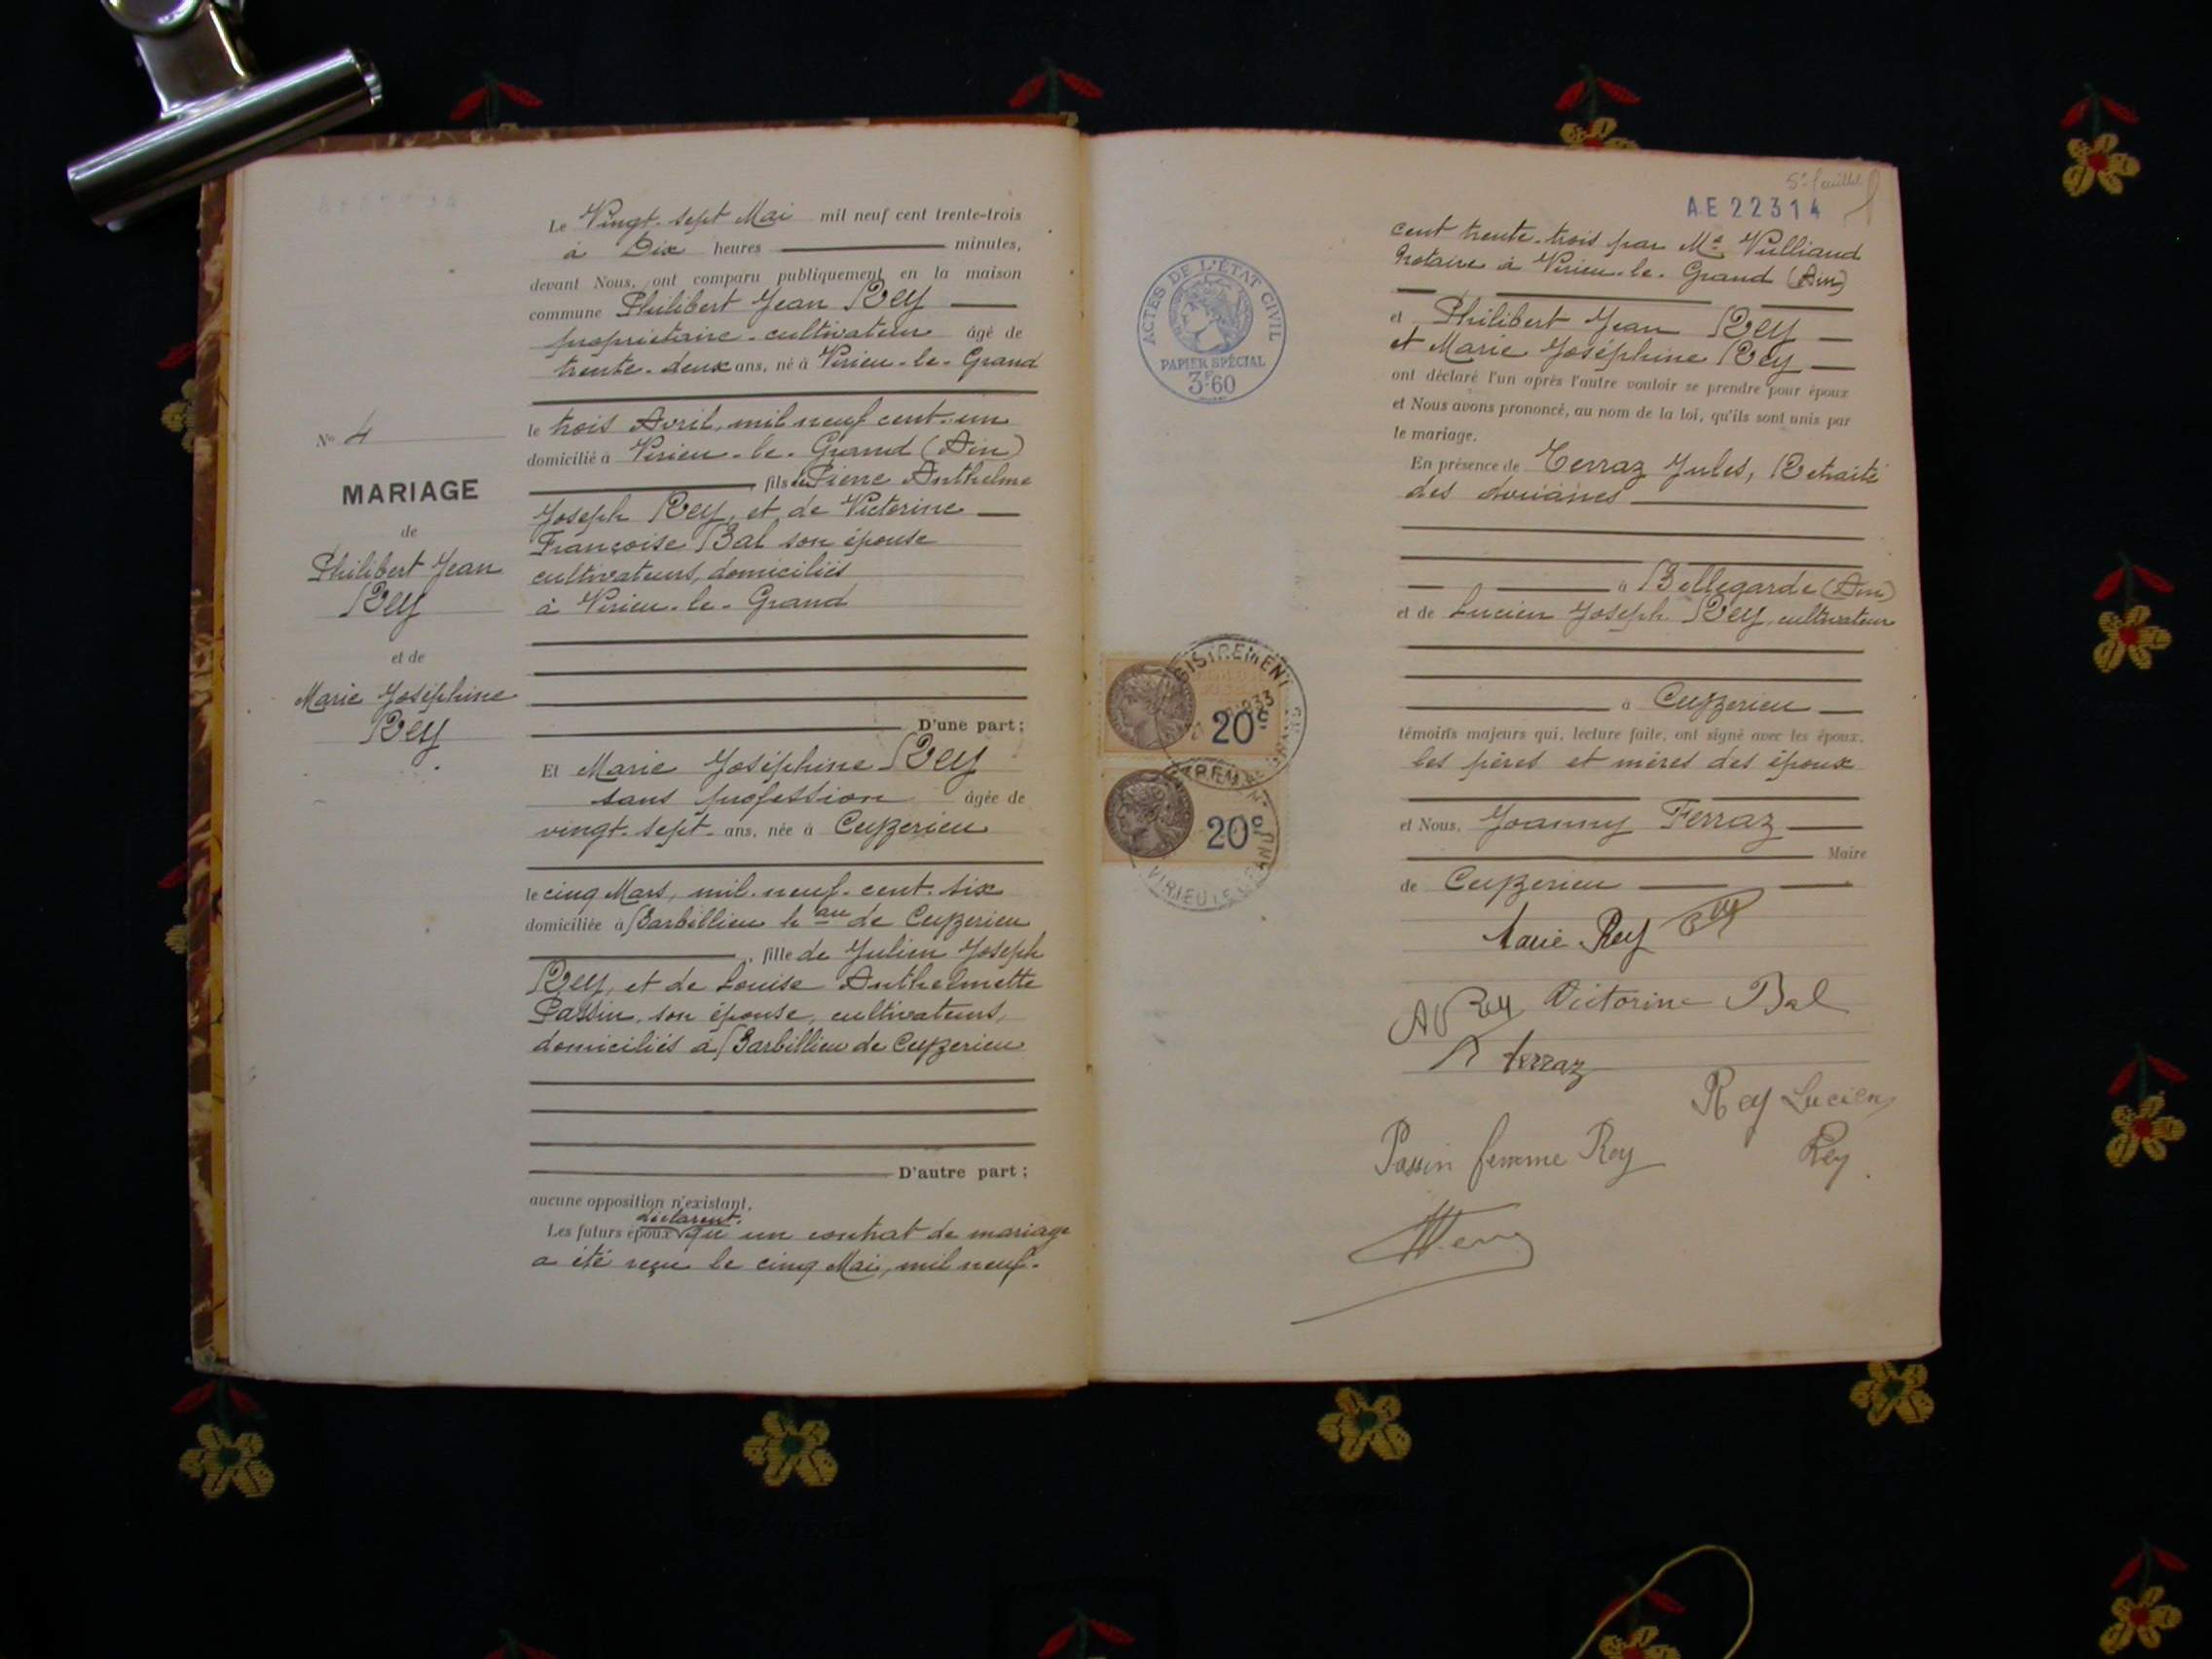 Le Vingt-sept Mai mil neuf cent trente-trois
à Dix heures minutes,
devant Nous, ont comparu publiquement en la maison
commune Philibert Jean Rey
propriétaire-cultivateur âgé de
trente-deux ans, né à Virieu-le-Grand
le trois Avril, mil neuf cent-un
domicilié à Virieu-le-Grand (Ain)
, fils de Pierre Anthelme
Joseph Rey, et de Victorine
Françoise Bal son épouse
cultivateurs, domiciliés
à Virieu-le-Grand
D'une part;
Nº 4
MARIAGE
de
Philibert Jean
Rey
et de
Marie Joséphine
Rey
Et Marie Joséphine Rey
sans profession âgée de
vingt-sept ans, née à Cuzerieu
le cinq Mars, mil-neuf-cent-six
domiciliée à Barbillieu hau de Cuzerieu
, fille de Julien Joseph
Rey, et de Louise Anthelmette
Passin, son épouse, cultivateurs,
domiciliés à Barbillieu de Cuzerieu
D'autre part;
aucune opposition n'existant,
déclarent
Les futurs époux qu'un contrat de mariage
a été reçu le cinq Mai, mil neuf-
5e feuillet
AE 22314
ACTES DE L'ÉTAT CIVIL
PAPIER SPÉCIAL
3F60
cent trente-trois par Me Vulliand
Notaire à Virieu-le-Grand (Ain)
et Philibert Jean Rey
et Marie Joséphine Rey
ont déclaré l'un après l'autre vouloir se prendre pour époux
et Nous avons prononcé, au nom de la loi, qu'ils sont unis par
le mariage.
En présence de Terraz Jules, Retraité
des douanes
à Bellegarde (Ain)
et de Lucien Joseph Rey, cultivateur
à Cuzerieu
témoins majeurs qui, lecture faite, ont signé avec les époux,
les pères et mères des époux
et Nous, Joanny Ferraz
Maire
de Cuzerieu
20c
20c
VIRIEU LE GRAND
Marie Rey Rey
Rey Victorine Bal
Terraz
Rey Lucien
Passin femme Rey
Rey